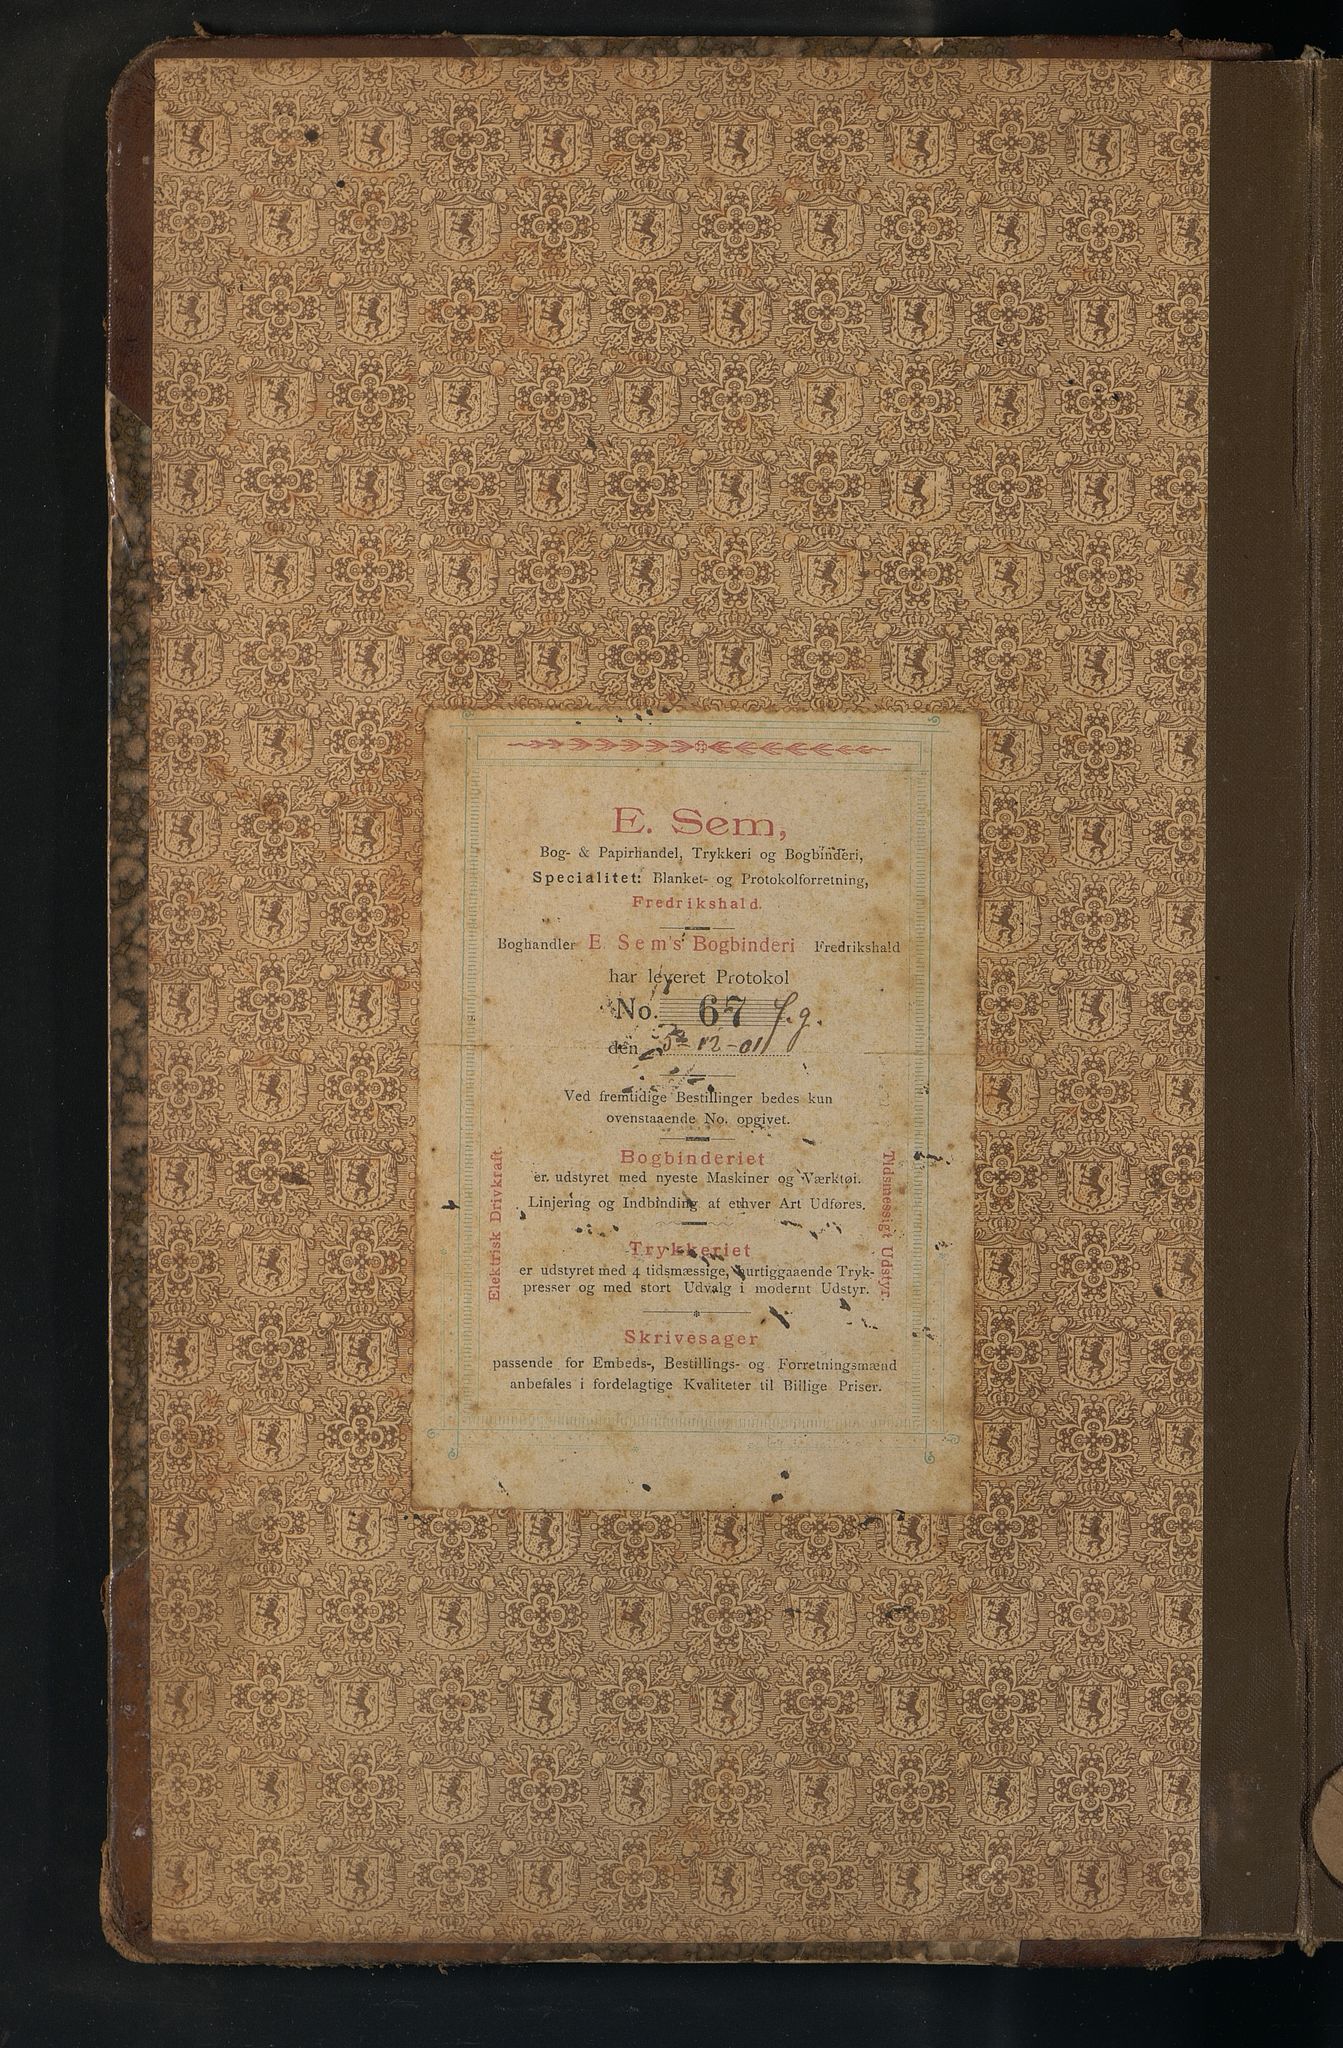 E. Sem,
Bog- & Papirhandel, Trykkeri og Bogbinderi,
Specialitet: Blanket- og Protokolforretning,
Fredrikshald.
Boghandler E. Sem's Bogbinderi Fredrikshald
har leveret Protokol
No. 67 f.g.
den 5-12-01
Ved fremtidige Bestillinger bedes kun
ovenstaaende No. opgivet.
Elektrisk Drivkraft.
Bogbinderiet
er udstyret med nyeste Maskiner og Værktøi.
Linjering og Indbinding af ethver Art Udføres.
Trykkeriet
er udstyret med 4 tidsmæssige, hurtiggaaende Tryk-
presser og med stort Udvalg i modernt Udstyr.
Tidsmessigt Udstyr.
Skrivesager
passende for Embeds-, Bestillings- og Forretningsmænd
anbefales i fordelagtige Kvaliteter til Billige Priser.